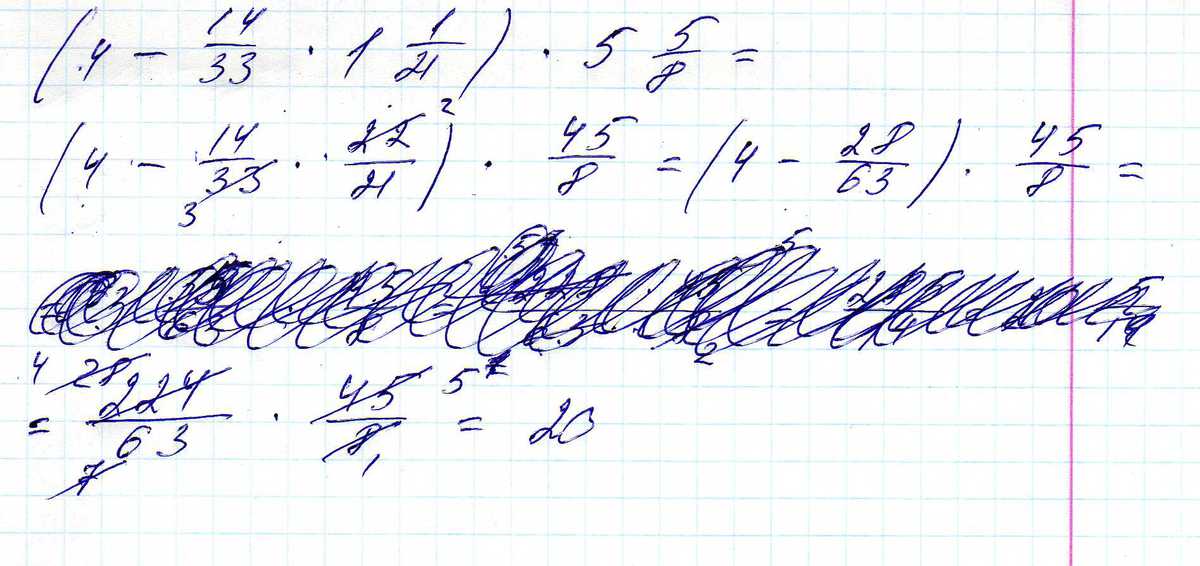 (4 - 14/33 · 1 1/21) · 5 5/8 =
(4 - 14/33 3 · 22/21 2) · 45/8 = (4 - 28/63) · 45/8 =
= 4 28 224/63 7 · 45/8 1 5 = 20